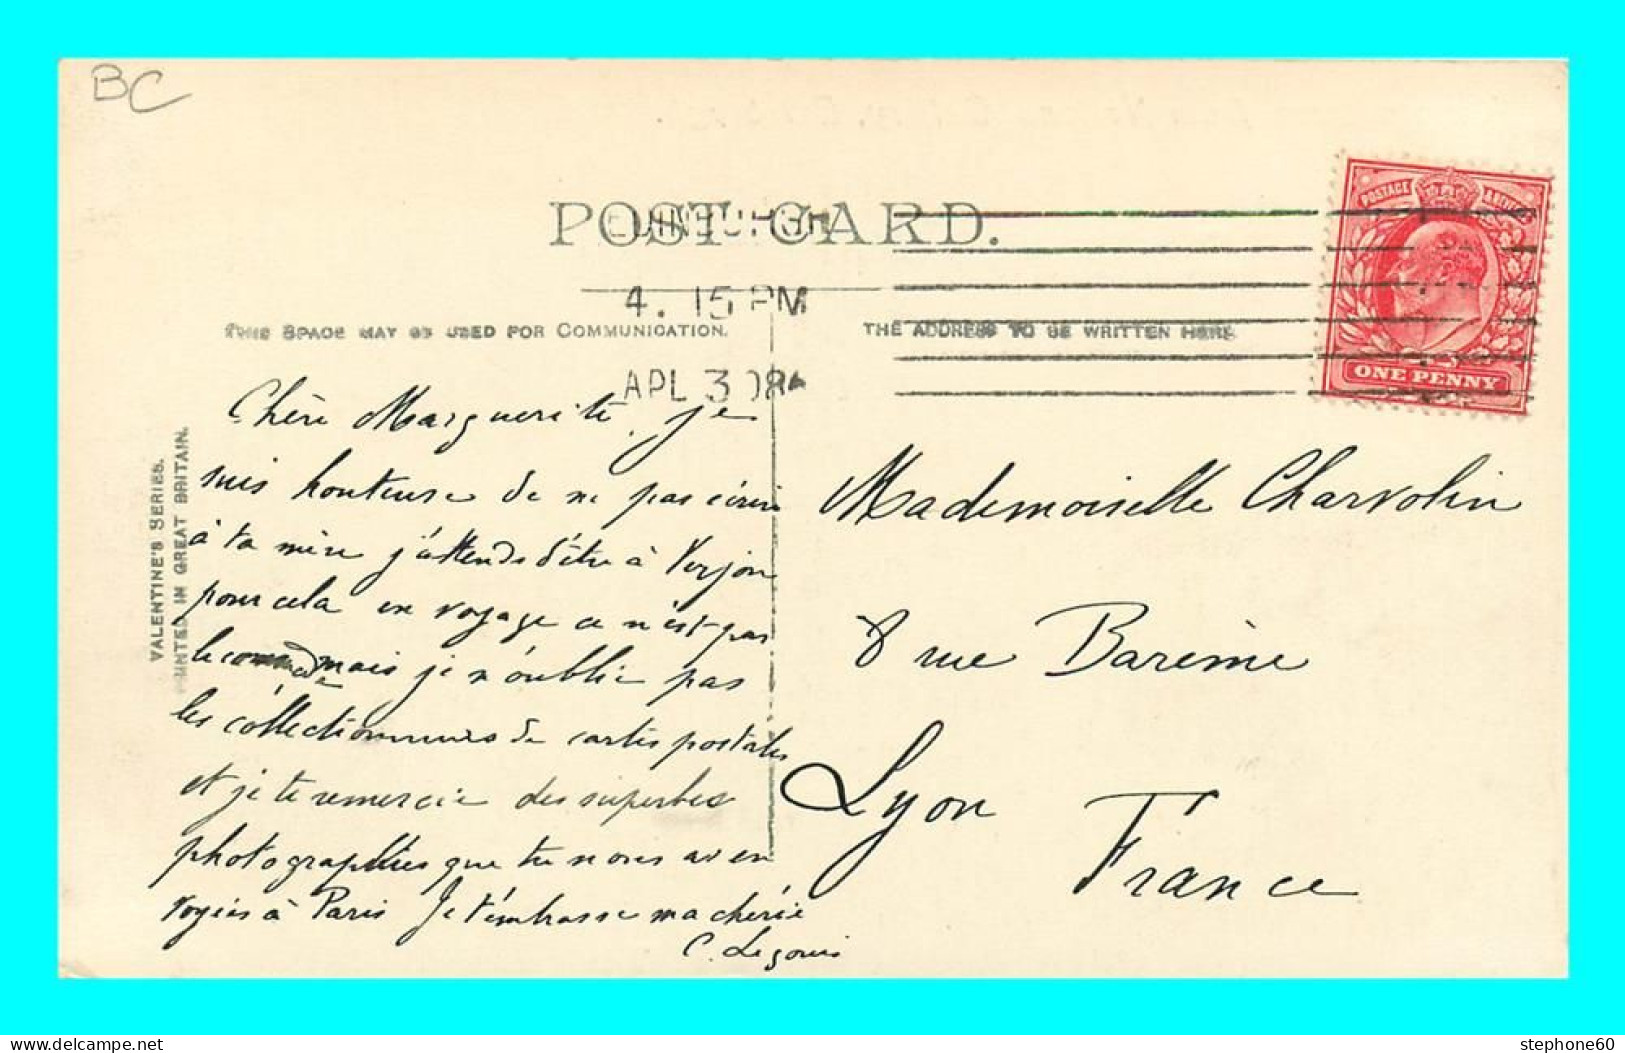 BC
POST CARD.
EDINBURGH
4. 15 PM
APL 3 08
THIS SPACE MAY BE USED FOR COMMUNICATION.
THE ADDRESS TO BE WRITTEN HERE.
POSTAGE
ONE PENNY
VALENTINE'S SERIES.
PRINTED IN GREAT BRITAIN.
Chère Marguerite, je
suis honteuse de ne pas écrire
à ta mère j'attends d'être à Verjon
pour cela en voyage ce n'est pas
mais je n'oublie pas
les collectionneurs de cartes postales
et je te remercie des superbes
photographies que tu nous as en
voyées à Paris Je t'embrasse ma chérie
C. Legouis
Mademoiselle Charvolin
8 rue Barème
Lyon
France
stephone60